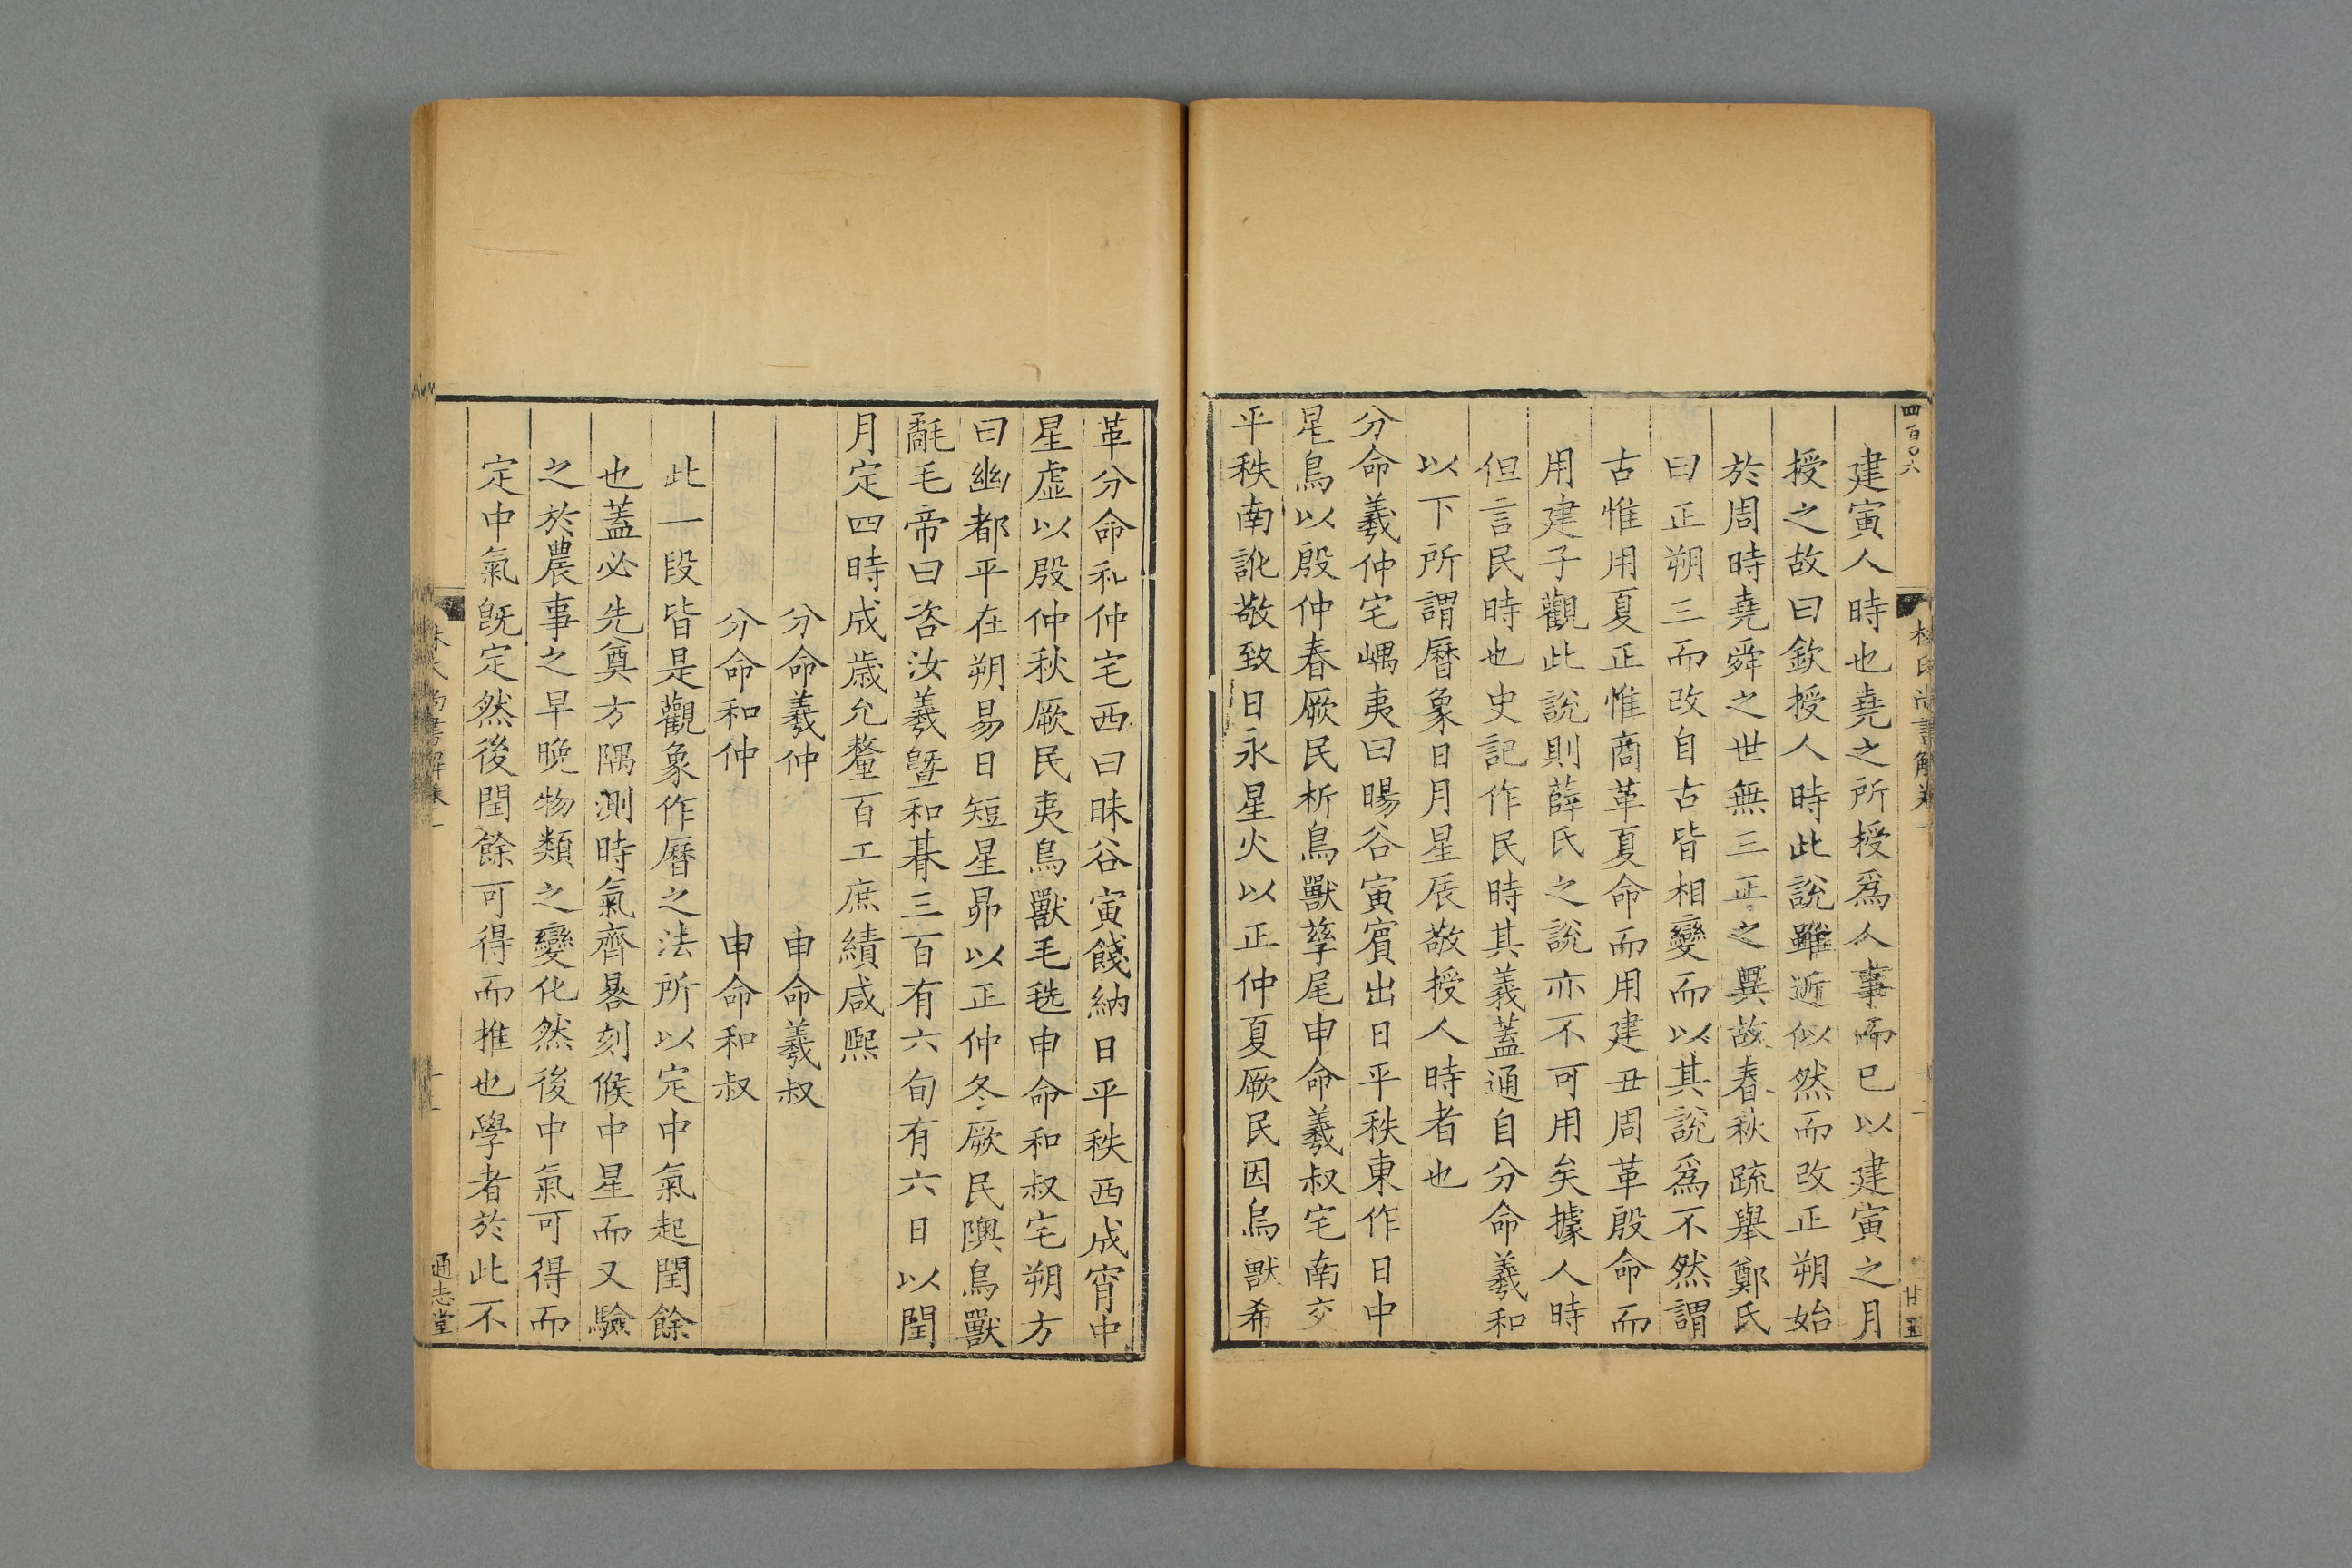 四百〇六
林氏尚書解卷一
十二
廿五
建寅人時也堯之所授爲人事而已以建寅之月
授之故曰欽授人時此說雖近似然而改正朔始
於周時堯舜之世無三正之異故春秋疏舉鄭氏
曰正朔三而改自古皆相變而以其說爲不然謂
古惟用夏正惟商革夏命而用建丑周革殷命而
用建子觀此說則薛氏之說亦不可用矣據人時
但言民時也史記作民時其義蓋通自分命羲和
以下所謂曆象日月星辰敬授人時者也
分命羲仲宅嵎夷曰暘谷寅賓出日平秩東作日中
星鳥以殷仲春厥民析鳥獸孳尾申命羲叔宅南交
平秩南訛敬致日永星火以正仲夏厥民因鳥獸希
革分命和仲宅西曰昧谷寅餞納日平秩西成宵中
星虛以殷仲秋厥民夷鳥獸毛毨申命和叔宅朔方
曰幽都平在朔易日短星昴以正仲冬厥民隩鳥獸
氄毛帝曰咨汝羲曁和朞三百有六旬有六日以閏
月定四時成歲允釐百工庶績咸熙
分命羲仲 申命羲叔
分命和仲 申命和叔
此一段皆是觀象作曆之法所以定中氣起閏餘
也蓋必先奠方隅測時氣齊晷刻候中星而又驗
之於農事之早晚物類之變化然後中氣可得而
定中氣旣定然後閏餘可得而推也學者於此不
林氏尚書解卷一
通志堂